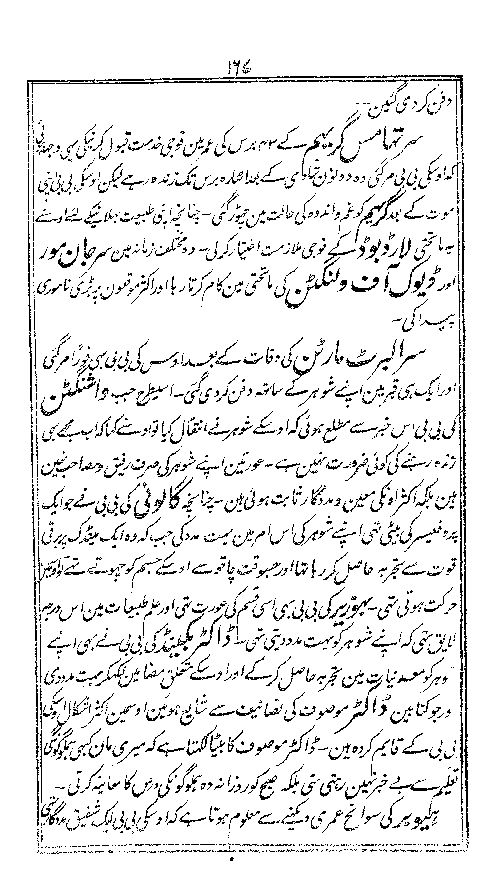 ۱۶۷
دفن کردی گئین۔
سر تھامس گریہم کے ۴۳ برس کی عمر مین فوجی خدمت قبول کرنیکی یہی وجہ ہوئی
کہ اوسکی بی بی مر گئی وہ دونون شادی کے بعد اٹھارہ برس تک زندہ رہے لیکن اوسکی بی بی اپنی
موت کے بعد گریہم کو غمزدہ اندوہ کی حالت مین چھوڑ گئی۔ چنانچہ اپنی طبیعت بہلانیکے لئے اوسنے
بہ ماتحتی لارڈ ہوڈ کے فوجی ملازمت اختیار کرلی۔ وہ مختلف زمانہ مین سر جان مور
اور ڈیوک آف ولنگٹن کی ماتحتی مین کام کرتا رہا اور اکثر موقعون پر بڑی ناموری
پیدا کی۔
سر البرٹ مارٹن کی وفات کے بعد اوس کی بی بی بھی فوراً مر گئی
اور ایک ہی قبر مین اپنے شوہر کے ساتھ دفن کردی گئی۔ اسیطرح جب واشنگٹن
کی بی بی اس خبر سے مطلع ہوئی کہ اوسکے شوہر نے انتقال کیا تو اوسنے کہا کہ اب مجھے بھی
زندہ رہنے کی کوئی ضرورت نہین ہے۔ عورتین اپنے شوہر کی صرف رفیق و مصاحب نہین
ہین بلکہ اکثر اونکی معین و مددگار ثابت ہوئی ہین۔ چنانچہ گالونی کی بی بی نے جو ایک
پروفیسر کی بیٹی تھی اپنے شوہر کی اس امر مین بہت مدد کی جب کہ وہ ایک مینڈک پر برقی
قوت سے تجربہ حاصل کر رہا تھا اور جسوقت چاقو سے اوسکے جسم کو چھوتے تھے تو اوسمین
حرکت ہوتی تھی۔ بہوریر کی بی بی بھی اسی قسم کی عورت تھی اور علم طبیعات مین اس درجہ
لایق تھی کہ اپنے شوہر کو بہت مدد دیتی تھی۔ ڈاکٹر بکلینڈ کی بی بی نے بھی اپنے
شوہر کو معدنیات مین تجربہ حاصل کرنے اور اوسکے متعلق مضامین لکھنے مین بہت مدد دی
اور جو کتابین ڈاکٹر موصوف کی تصانیف سے شایع ہوئین اوسمین اکثر اشکال اوسکی
بی بی کے قایم کردہ ہین۔ ڈاکٹر موصوف کا بیٹا لکھتا ہے کہ میری مان کبھی ہم لوگونکی
تعلیم سے بے خبر نہین رہتی تھی بلکہ صبح کو روزانہ وہ ہم لوگونکی درس کا معاینہ کرتی۔
ہیکیوبر کی سوانح عمری دیکھنے سے معلوم ہوتا ہے کہ اوسکی بی بی ایک شفیق مددگار تھی